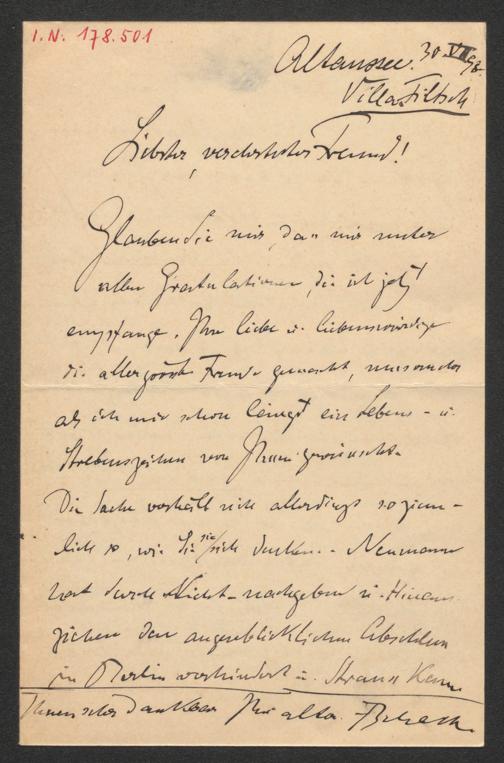 I.N. 178.501
Altaussee. 30 VII 98.
Villa Filtsch
Liebster, verehrtester Freund!
Glauben Sie mir, dass mir unter
allen Gratulationen, die ich jetzt
empfange, Ihre liebe u. liebenswürdige
die allergrösste Freude gemacht, umsomehr
als ich mir schon längst ein Lebens- u.
Strebenszeichen von Ihnen gewünscht.
Die Sache verhält sich allerdings so ziem-
lich so, wie Sie sie sich denken. - Neumann
hat durch Nicht-nachgeben u. Hinaus-
ziehen den augenblicklichen Abschluss
in Berlin verhindert u. Strauss kam
Ihnen stets dankbar Ihr alter